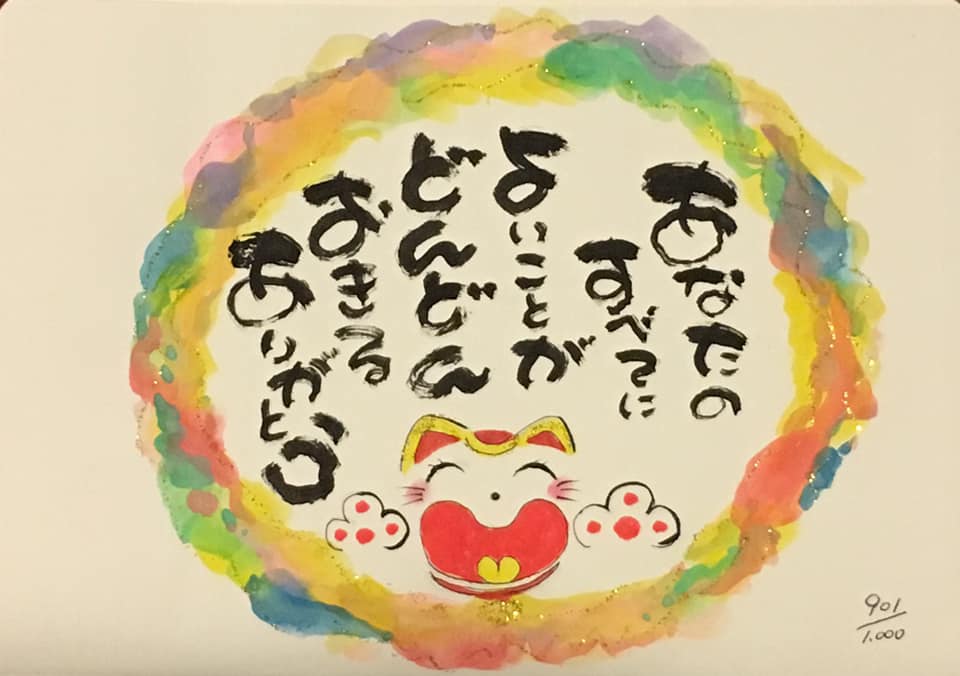 あなたの
すべてに
よいことが
どんどん
おきる
ありがとう
901/1.000